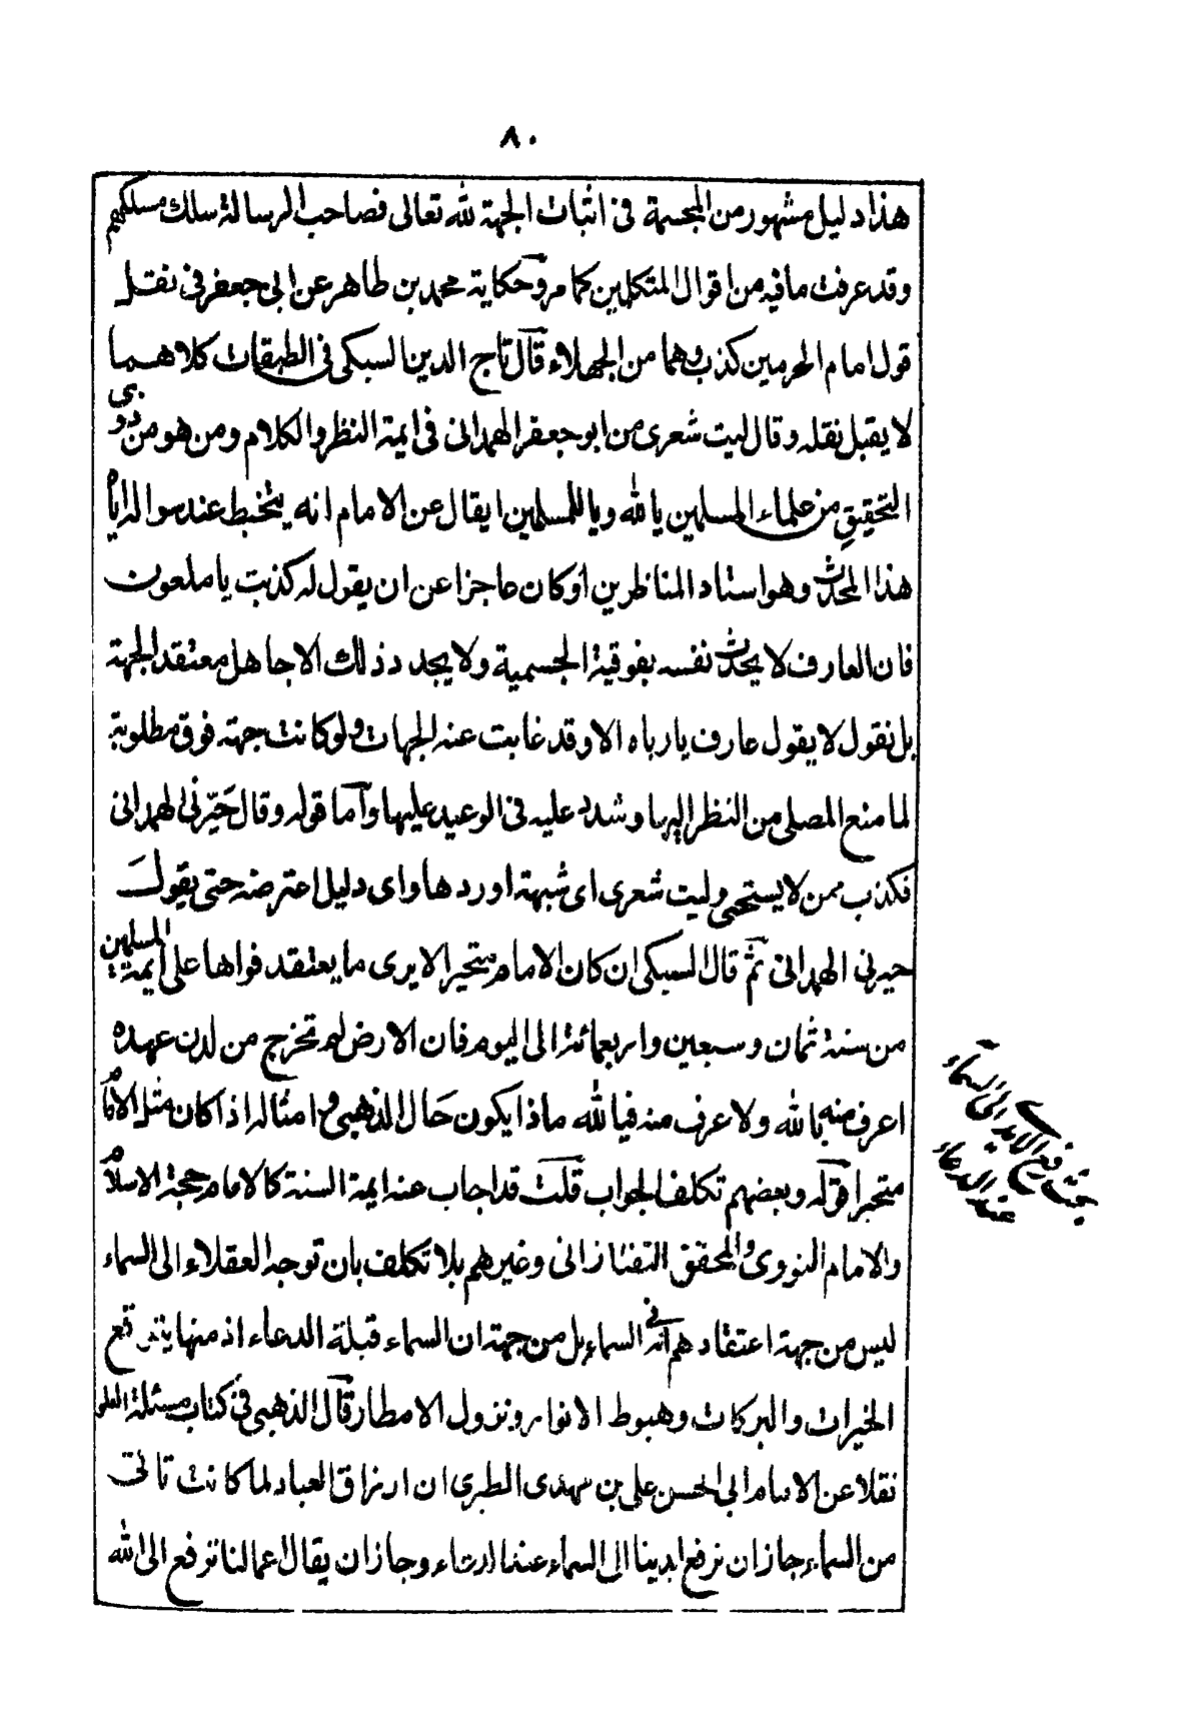 ٨٠
هذا دليل مشهور من المجسمة فى اثبات الجهة لله تعالى فصاحب الرسالة سلك مسلكهم
وقد عرفت ما فيه من اقوال المتكلمين كما مر وحكاية محمد بن طاهر عن ابى جعفر فى نقل
قول امام الحرمين كذب وهما من الجهلاء قال تاج الدين السبكى فى الطبقات كلاهما
لا يقبل نقله وقال ليت شعرى من ابو جعفر الهمدانى فى ايمة النظر والكلام ومن هو من ذوى
التحقيق من علماء المسلمين يا لله ويا للمسلمين ايقال عن الامام انه يتخبط عند سواله اياه
هذا المحدث وهو استاد المناظرين او كان عاجزا عن ان يقول له كذبت يا ملعون
فان العارف لا يحدث نفسه بفوقية الجسمية ولا يجدد ذلك الا جاهل معتقد الجهة
بل نقول لا يقول عارف يا رباه الا وقد غابت عنه الجهات ولو كانت جهته فوق مطلوبة
لما منع المصلى من النظر اليها وشدد عليه فى الوعيد عليها واما قوله وقال حَيّرنى الهمدانى
فكذب ممن لا يستحيى وليت شعرى اى شبهة اوردها واى دليل اعترضه حتى يقول
حيرنى الهمدانى ثم قال السبكى ان كان الامام متحيرا لا يرى ما يعتقد فواها على ايمة المسلمين
من سنة ثمان وسبعين واربعمائة الى اليوم فان الارض لم تخرج من لدن عهده
اعرف منه بالله ولا عرف منه فيا لله ماذا يكون حَال الذهبى وامثاله اذا كان مثل الامام
متحيرا قوله وبعضهم تكلف الجواب قلت قد اجاب عنه ايمة السنة كالامام حجة الاسلام
والامام النووى والمحقق التفتازانى وغيرهم بلا تكلف بان توجه العقلاء الى السماء
ليس من جهة اعتقادهم انه فى السماء بل من جهة ان السماء قبلة الدعاء اذ منها يتوقع
الخيرات والبركات وهبوط الانوار ونزول الامطار قال الذهبى فى كتاب مسئلة العلو
نقلا عن الامام ابى الحسن على بن مهدى الطبرى ان ارزاق العباد لما كانت تاتى
من السماء جاز ان نرفع ايدينا الى السماء عند الدعاء وجاز ان يقال اعمالنا ترفع الى الله
بحث رفع الايدى الى السماء
عند الدعاء